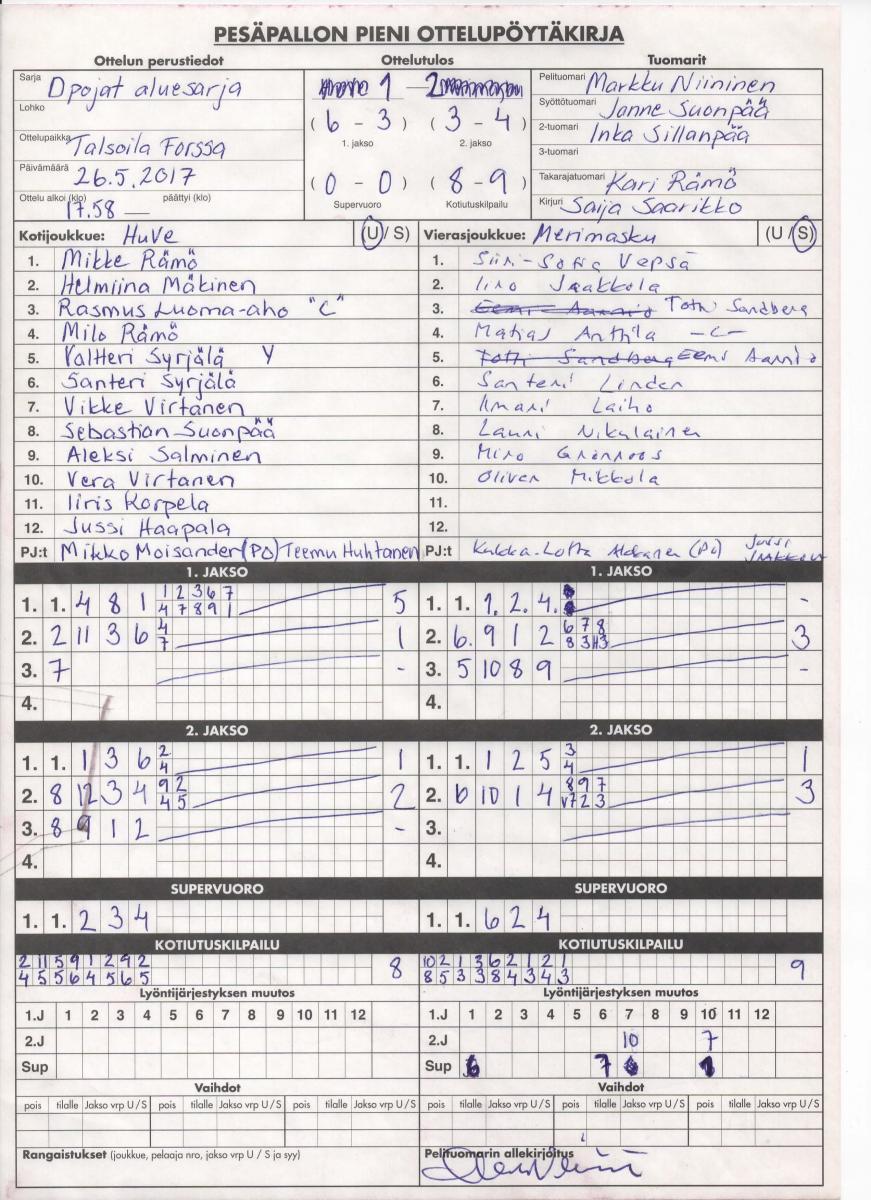 PESÄPALLON PIENI OTTELUPÖYTÄKIRJA
Ottelun perustiedot
Sarja D pojat aluesarja
Lohko
Ottelupaikka Talsoila Forssa
Päivämäärä 26.5.2017
Ottelu alkoi (klo) 17.58 — päättyi (klo)
Ottelutulos
1 — 2
( 6 - 3 ) ( 3 - 4 )
1. jakso 2. jakso
( 0 - 0 ) ( 8 - 9 )
Supervuoro Kotiutuskilpailu
Tuomarit
Pelituomari Markku Niininen
Syöttötuomari Janne Suonpää
2-tuomari Inka Sillanpää
3-tuomari
Takarajatuomari Kari Rämö
Kirjuri Saija Saarikko
Kotijoukkue: HuVe (U / S)
1. Mikke Rämö
2. Helmiina Mäkinen
3. Rasmus Luoma-aho "C"
4. Milo Rämö
5. Valtteri Syrjälä Y
6. Santeri Syrjälä
7. Vikke Virtanen
8. Sebastian Suonpää
9. Aleksi Salminen
10. Vera Virtanen
11. Iiris Korpela
12. Jussi Haapala
PJ:t Mikko Moisander (PO) Teemu Huhtanen
Vierasjoukkue: Merimasku (U / S)
1. Siiri-Sofia Vepsä
2. Iiro Jaakkola
3. Eemi Aarnio Totti Sandberg
4. Matias Anttila -C-
5. Totti Sandberg Eemi Aarnio
6. Santeri Linden
7. Ilmari Laiho
8. Lauri Nikulainen
9. Miro Grönroos
10. Oliver Mikkola
11.
12.
PJ:t (PO) Jussi Jaakkola
1. JAKSO
1. 1. 4 8 1 1 2 3 6 7 5
4 7 8 9 1
2. 2 11 3 6 4 1
7
3. 7 -
4.
1. JAKSO
1. 1. 1. 2. 4. -
2. 6. 9 1 2 6 7 8 3
8 3 H3
3. 5 10 8 9 -
4.
2. JAKSO
1. 1. 1 3 6 2 1
4
2. 8 12 3 4 9 2 2
4 5
3. 8 9 1 2 -
4.
2. JAKSO
1. 1. 1 2 5 3 1
4
2. 6 10 1 4 8 9 7 3
V7 2 3
3.
4.
SUPERVUORO
1. 1. 2 3 4
SUPERVUORO
1. 1. 6 2 4
KOTIUTUSKILPAILU
2 11 5 9 1 2 9 2 8
4 5 5 6 4 5 6 5
KOTIUTUSKILPAILU
10 2 1 3 6 2 1 2 1 9
8 5 3 3 8 4 3 4 3
Lyöntijärjestyksen muutos
1.J 1 2 3 4 5 6 7 8 9 10 11 12
2.J
Sup
Lyöntijärjestyksen muutos
1.J 1 2 3 4 5 6 7 8 9 10 11 12
2.J 10 7
Sup 6 7 1
Vaihdot
pois tilalle Jakso vrp U / S pois tilalle Jakso vrp U / S pois tilalle Jakso vrp U / S
Vaihdot
pois tilalle Jakso vrp U / S pois tilalle Jakso vrp U / S pois tilalle Jakso vrp U / S
Rangaistukset (joukkue, pelaaja nro, jakso vrp U / S ja syy)
Pelituomarin allekirjoitus